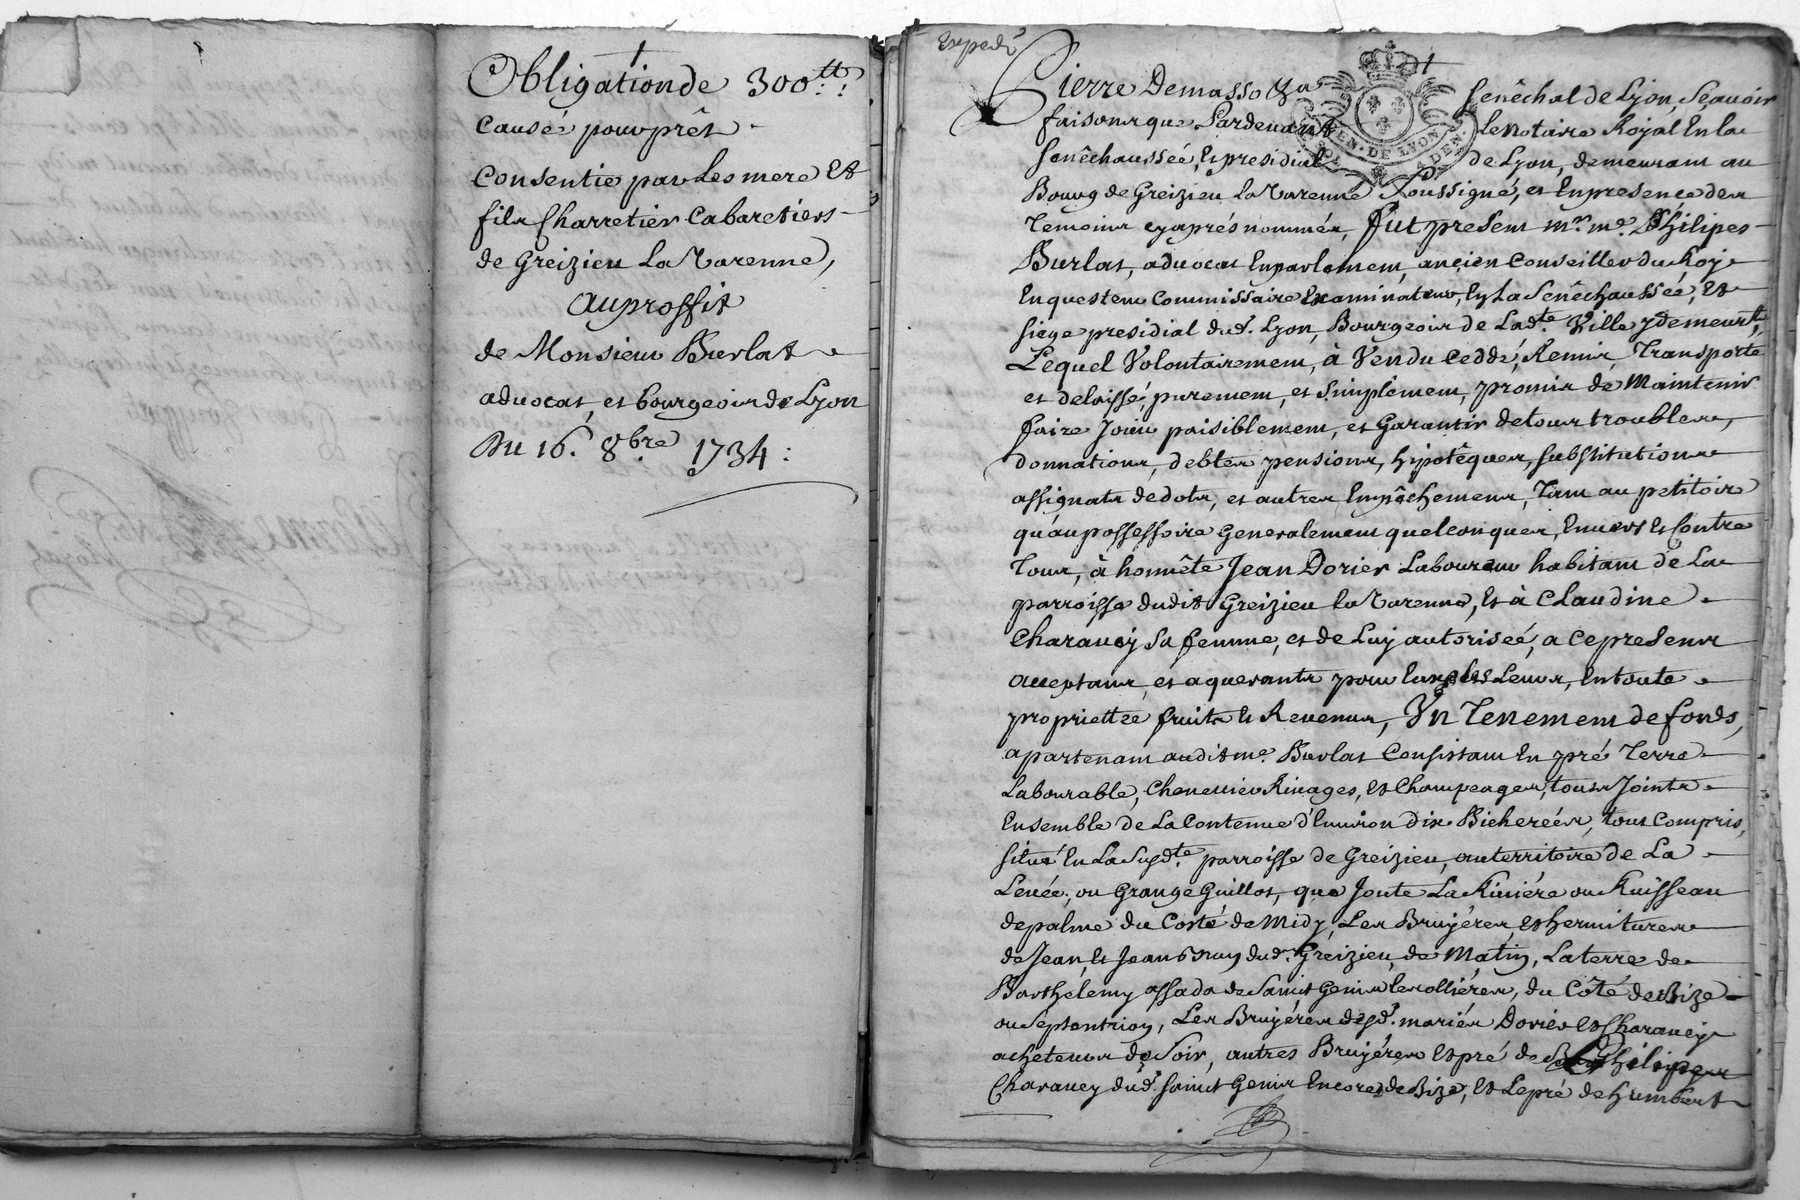 Obligation de 300ᵗᵗ:
Causée pour prêt
Consentie par Les mere Et
fils Charretier Cabaretiers
de Greizieu La Varenne,
au proffit
de Monsieur Burlat
advocat, et bourgeois de Lyon
Du 16. 8bre 1734:
Expedé
Pierre Demasso
Senêchal de Lyon, Sçavoir
faisons que Pardevant
le notaire Royal En la
Senêchaussée, Et presidial
de Lyon, demeurant au
Bourg de Greizieu La Varenne Soussigné, et En presence des
Temoins cy aprés nommés, Fut present mr. me. Philipes
Burlat, advocat En parlement, ancien Conseiller du Roy
Enquesteur Commissaire Examinateur, En La Senêchaussée, Et
siege presidial dud. Lyon, Bourgeois de Ladte. Ville y demeurt,
Lequel Volontairement, à Vendu ceddé, Remis, Transporté
et delaissé, purement, et simplement, promis de Maintenir
faire Jouir paisiblement, et Garantir de tous troubles,
donnations, debtes pensions, hipotêques, substitutions
assignats de dots, et autres Empêchements, Tant au petitoire
qu'au possessoire Generalement quelconques, Envers Et Contre
Tous, à honnête Jean Dorier Laboureur habitant de La
parroisse dudit Greizieu la Varenne, Et à Claudine
Charavey Sa femme, et de Luy autoriseé, a ce presents
acceptants, et aquerants pour Eux et les Leurs, En toute
proprietté fruits Et Revenus, Un Tenement de fonds,
apartenant audit me. Burlat Consistant En pré Terre
Labourable, Chenevier Rivages, et Champeages, tous Joints
Ensemble de La Contenue d'Environ dix Bichereés, tout Compris,
situé En La Susdte. parroisse de Greizieu, au territoire de La
Levée, ou Grange Guillot, que Joute La Riviére ou Ruisseau
de palme du Costé de Midy, Les Bruyéres, et hermitures
de Jean, Et Jean Bruy dud. Greizieu, de Matin, La terre de
Barthelemy assada de Saint Genis les ollières, du Côté de Bize
ou Septentrion, Les Bruyéres desd. mariés Dorier et Charavey
acheteurs de Soir, autres Bruyéres et pré de Philipes
Charavey dud. Saint Genis Encore de Bize, Et Le pré de humbert